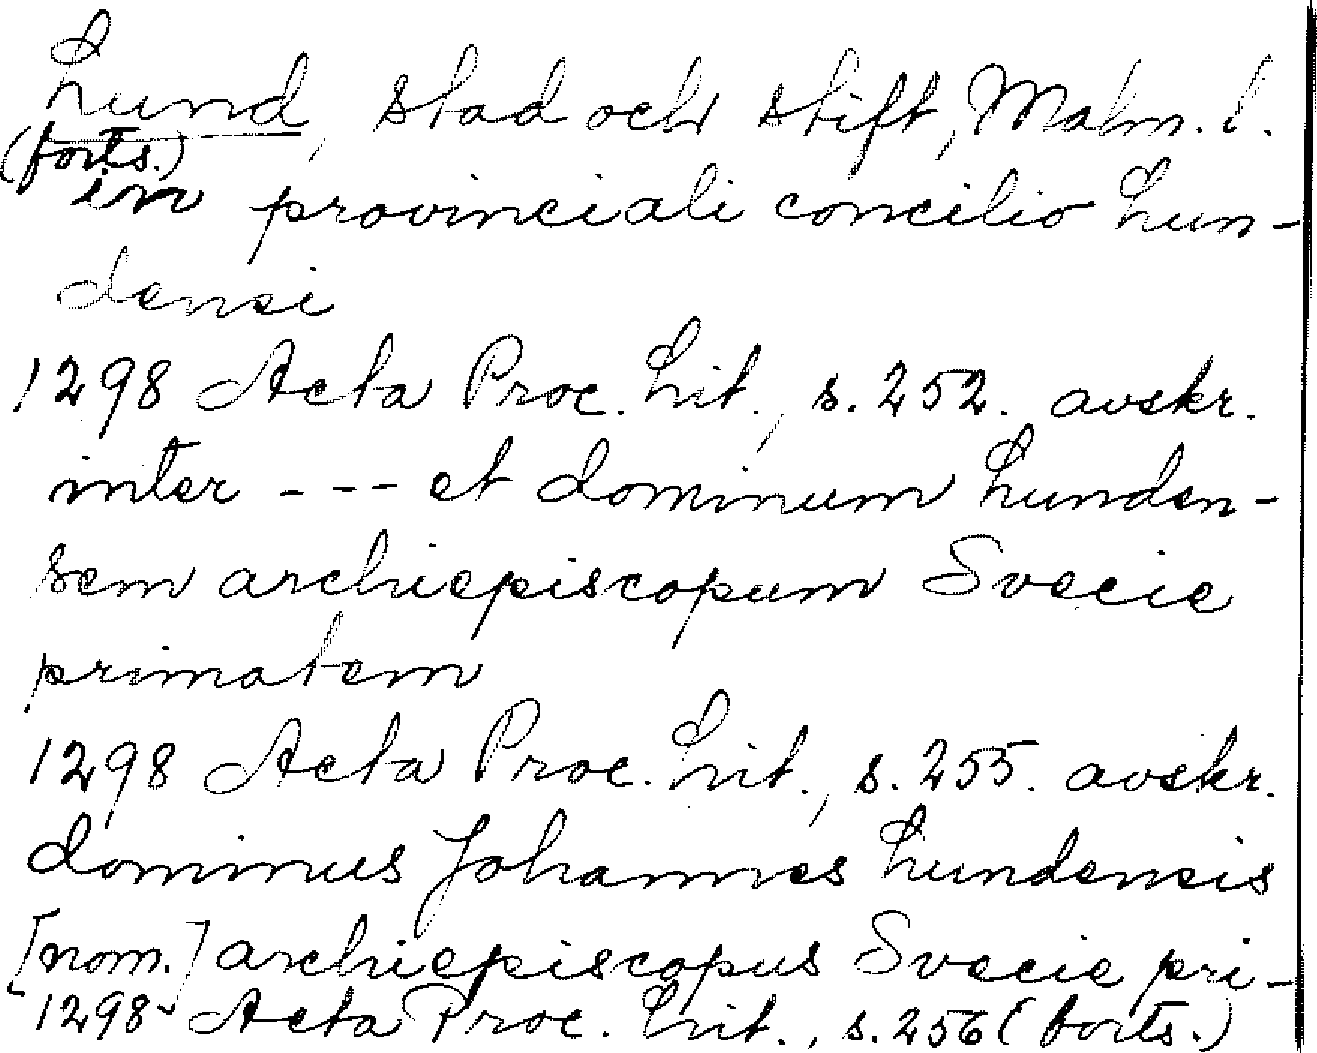 Lund, stad och stift, Malm. l.
(forts.)
in provinciali concilio Lun-
densi
1298 Acta Proc. Lit., s. 252. avskr.
inter --- et dominum Lunden-
sem archiepiscopum Svecie
primatem
1298 Acta Proc. Lit., s. 255. avskr.
dominus Johannes Lundensis
[nom.] archiepiscopus Svecie pri-
1298 Acta Proc. Lit., s. 256 (forts.)